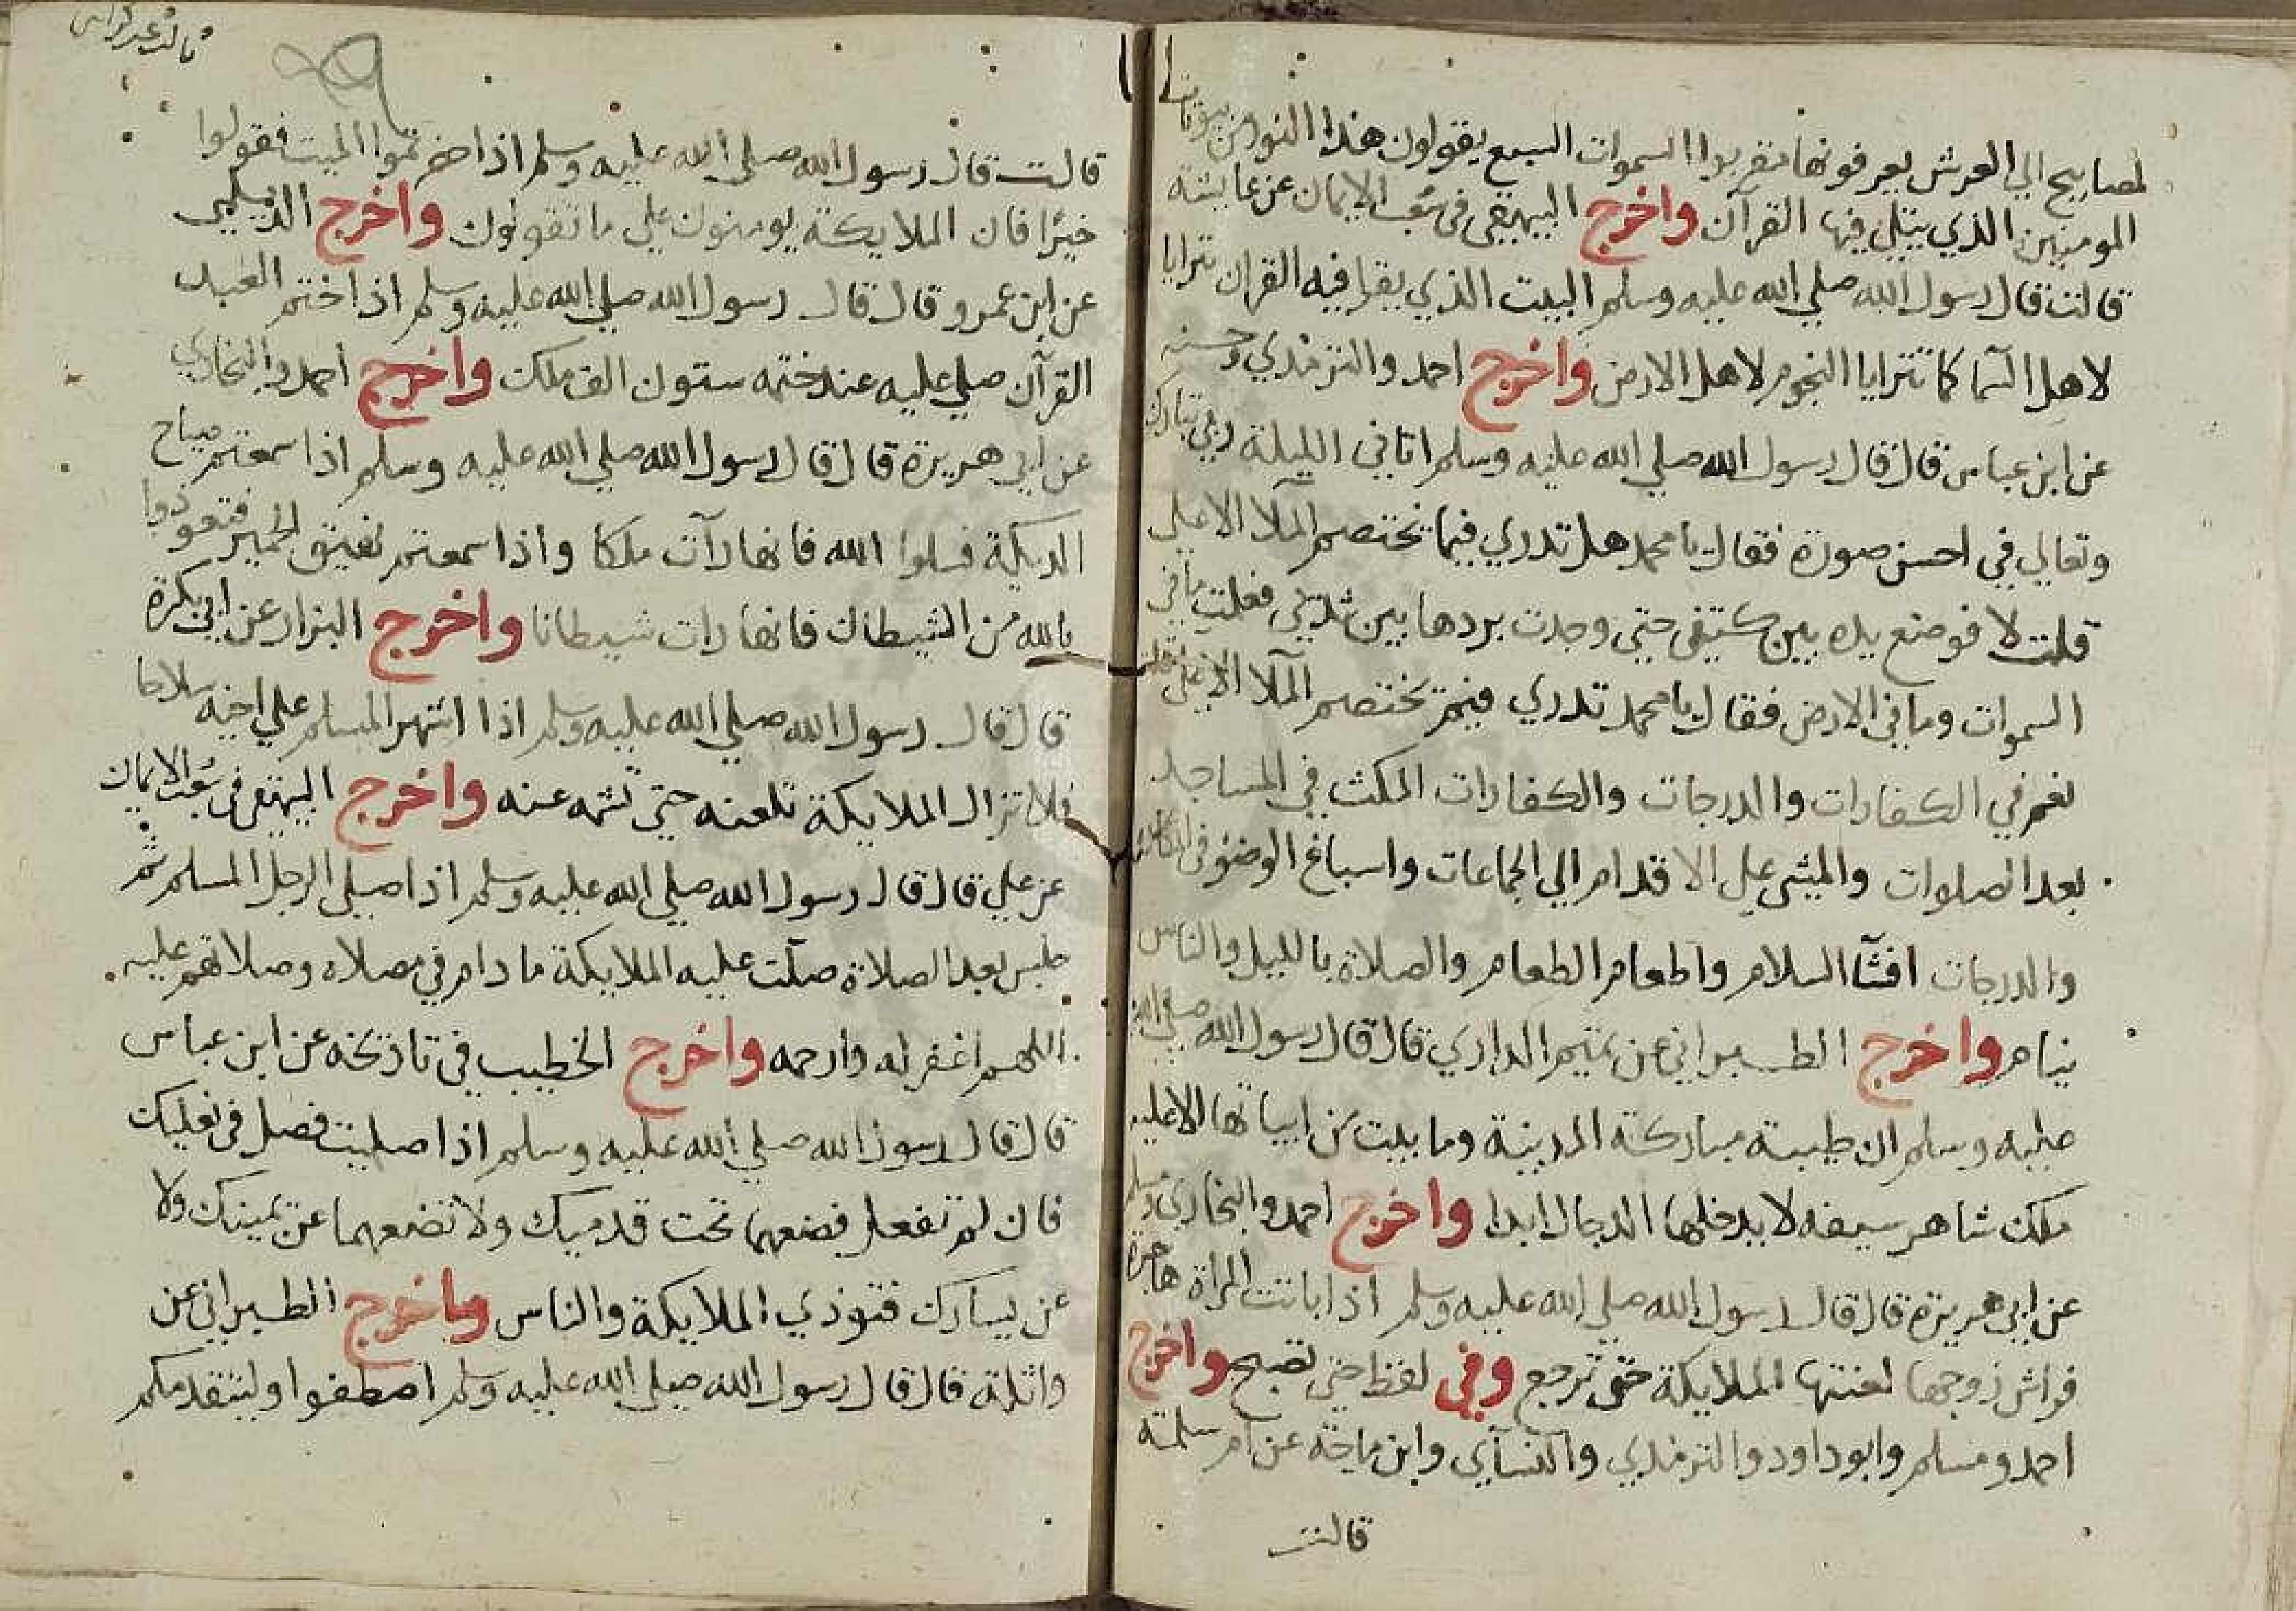 لمصابيح الي العرش يعرفونها مقربوا السموات السبع يقولون هذا النور من بيوتات
المومنين الذي يتلي فيها القرآن واخرج البيهقي في شعب الايمان عن عايشة
قالت قال رسول الله صلي الله عليه وسلم البيت الذي يقرا فيه القران تترايا
لاهل السما كما تترايا النجوم لاهل الارض واخرج احمد والترمذي وحسنه
عن ابن عباس قال قال رسول الله صلي الله عليه وسلم اتاني الليلة ربي تبارك
وتعالي في احسن صورة فقال يا محمد هل تدري فيما تختصم الملا الاعلي
قلت لا فوضع يده بين كتيفى حتي وجدت بردها بين ثديي فعلت ما في
السموات وما في الارض فقال يا محمد تدري فيم تختصم الملآ الاعلي قلت
نعم في الكفارات والدرجات والكفارات المكث في المساجد
بعد الصلوات والمشي علي الاقدام الي الجماعات واسباغ الوضؤ في المكاره
والدرجات افشآ السلام واطعام الطعام والصلاة بالليل والناس
نيام واخرج الطبراني عن تميم الداري قال قال رسول الله صلي الله
عليه وسلم ان طيبة مباركة المدينة وما بيت من ابياتها الا عليه
ملك شاهر سيفه لا يدخلها الدجال ابدا واخرج احمد والبخاري ومسلم
عن ابي هريرة قال قال رسول الله صلي الله عليه وسلم اذا باتت المراة هاجرة
فراش زوجها لعنتها الملايكة حتى ترجع وفي لفظ حتي تصبح واخرج
احمد ومسلم وابو داود والترمذي والنسآي وابن ماجة عن ام سلمة
قالت
قالت قال رسول الله صلي الله عليه وسلم اذا حضرتموا الميت فقولوا
خيرًا فان الملايكة يومنون علي ما تقولون واخرج الديلمي
عن ابن عمرو قال قال رسول الله صلي الله عليه وسلم اذا ختم العبد
القرآن صلي عليه عند ختمه ستون الف ملك واخرج احمد والبخاري
عن ابي هريرة قال قال رسول الله صلي الله عليه وسلم اذا سمعتم صياح
الديكة فسلوا الله فانها رآت ملكا واذا سمعتم نهيق الحمير فتعوذوا
بالله من الشيطان فانها رات شيطانا واخرج البزار عن ابي بكرة
قال قال رسول الله صلي الله عليه وسلم اذا اشهر المسلم علي اخيه سلاحا
فلا تزال الملايكة تلعنه حتي تشمه عنه واخرج البيهقي في شعب الايمان
عن علي قال قال رسول الله صلي الله عليه وسلم اذا صلي الرجل المسلم ثم
جلس بعد الصلاة صلت عليه الملايكة ما دام في مصلاه وصلاتهم عليه
اللهم اغفر له وارحمه واخرج الخطيب في تاريخه عن ابن عباس
قال قال رسول الله صلي الله عليه وسلم اذا صليت فصل في نعليك
فان لم تفعل فضعهما تحت قدميك ولا تضعهما عن يمينك ولا
عن يسارك فتوذي الملايكة والناس واخرج الطبراني عن
واثلة قال قال رسول الله صلي الله عليه وسلم اصطفوا وليتقدمكم